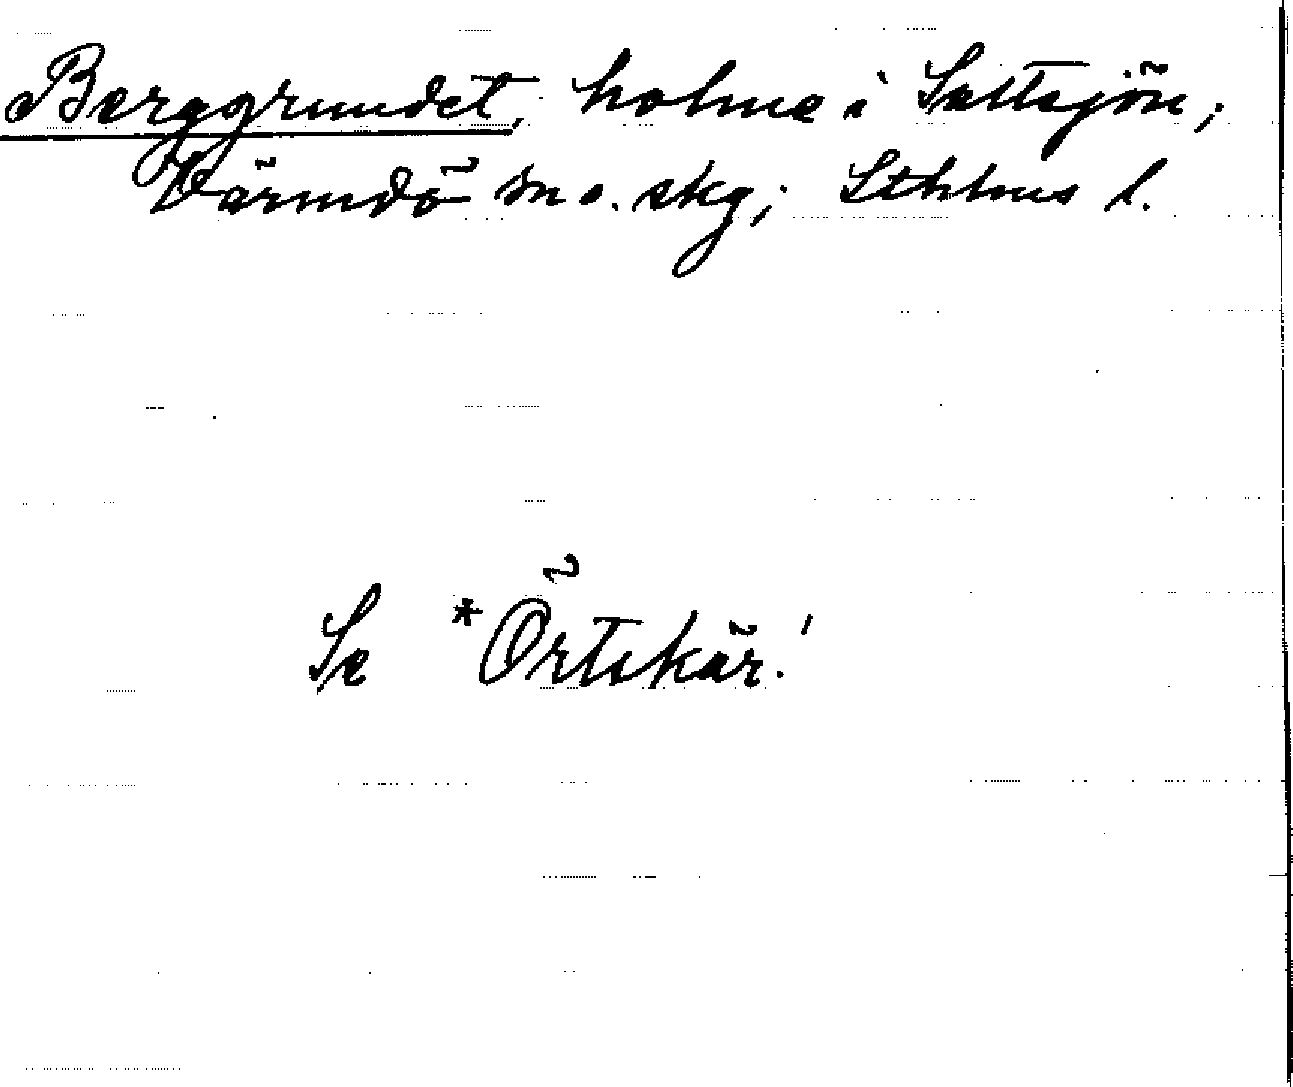 Berggrundet, holme i Saltsjön;
Värmdö sn o. skg; Sthlms l.
Se *Örtskär!